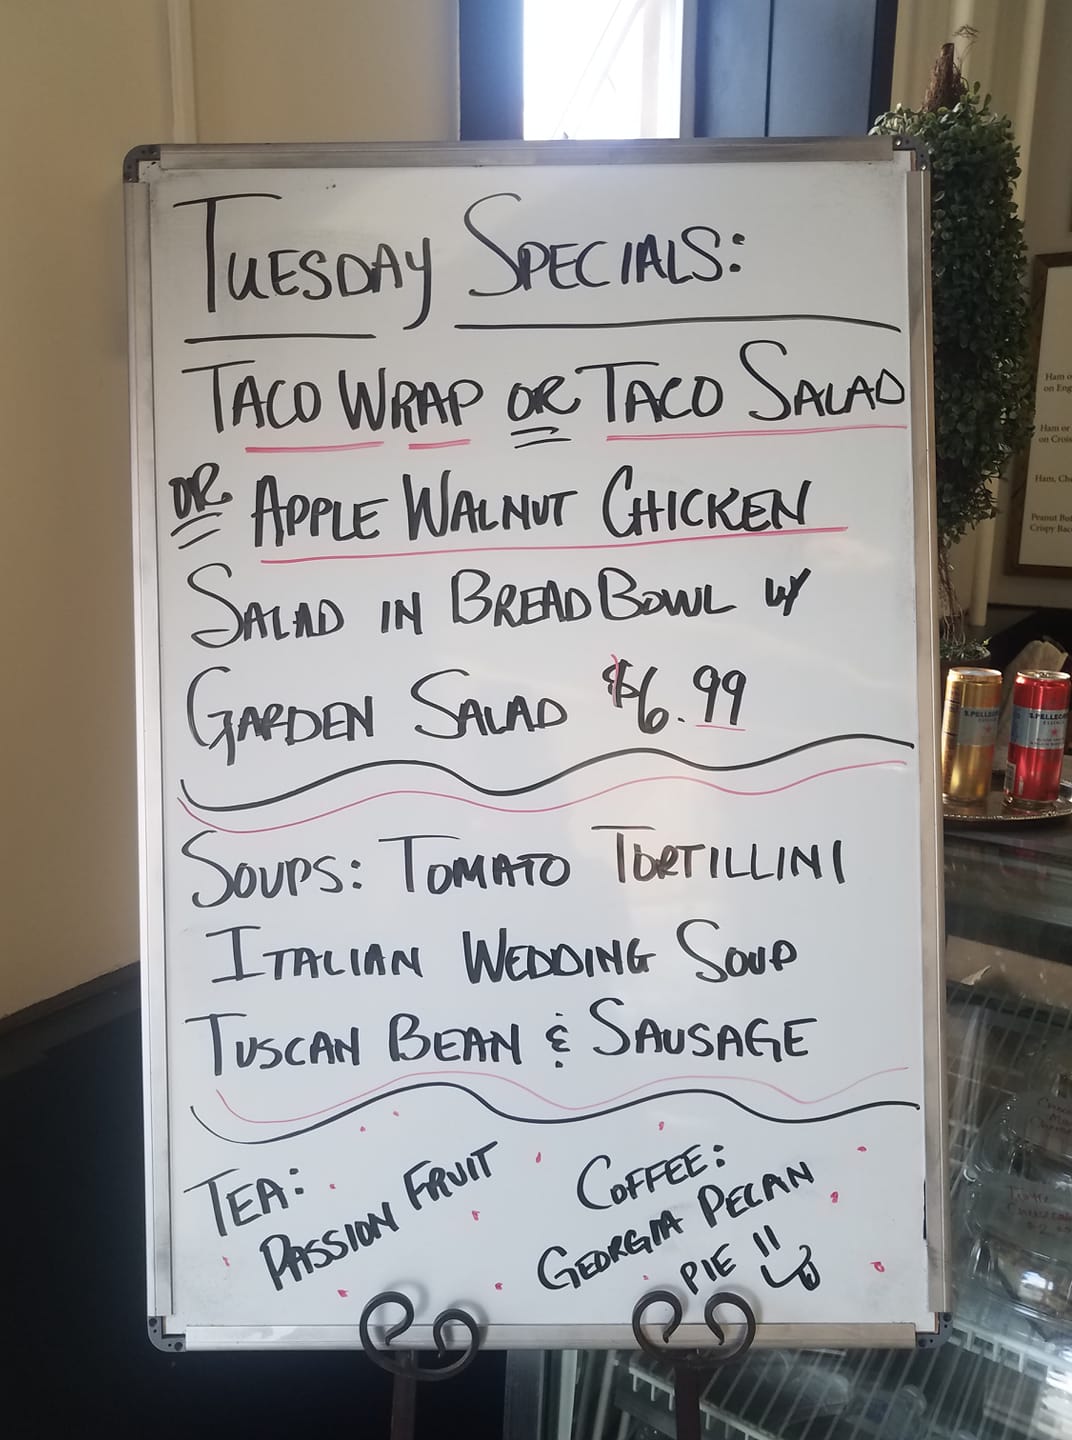 TUESDAY SPECIALS:
TACO WRAP OR TACO SALAD
OR APPLE WALNUT CHICKEN
SALAD IN BREAD BOWL W/
GARDEN SALAD $6.99
SOUPS: TOMATO TORTILLINI
ITALIAN WEDDING SOUP
TUSCAN BEAN & SAUSAGE
TEA:
PASSION FRUIT
COFFEE:
GEORGIA PECAN
PIE
Ham
on
Ham or
on
Ham,
Peanut
Crispy
S.PELLEGRINO